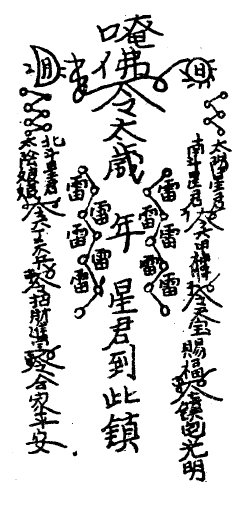 唵佛令太歲 年 星君到此鎮
日
月
太陽星君
南斗星君
天官賜福
鎮宅光明
雷雷雷雷雷
雷雷雷雷雷
北斗星君
太陰娘娘
六丁天兵
招財進寶
合家平安